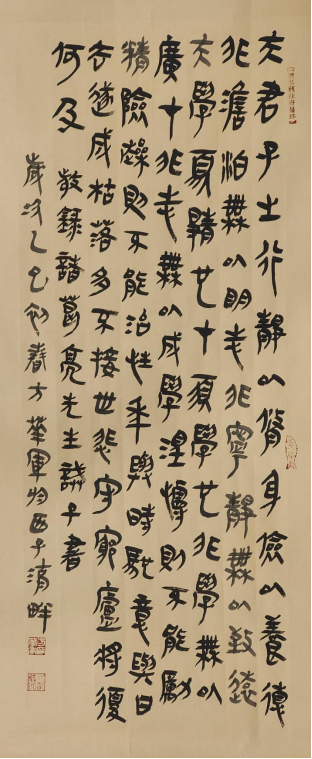 夫君子之行靜以脩身儉以養德
非澹泊無以明志非寧靜無以致遠
夫學須靜也才須學也非學無以
廣才非志無以成學淫慢則不能勵
精險躁則不能治性年與時馳意與日
去遂成枯落多不接世悲守窮廬將復
何及 敬錄諸葛亮先生誡子書
歲次乙巳初春方華軍於西子湖畔